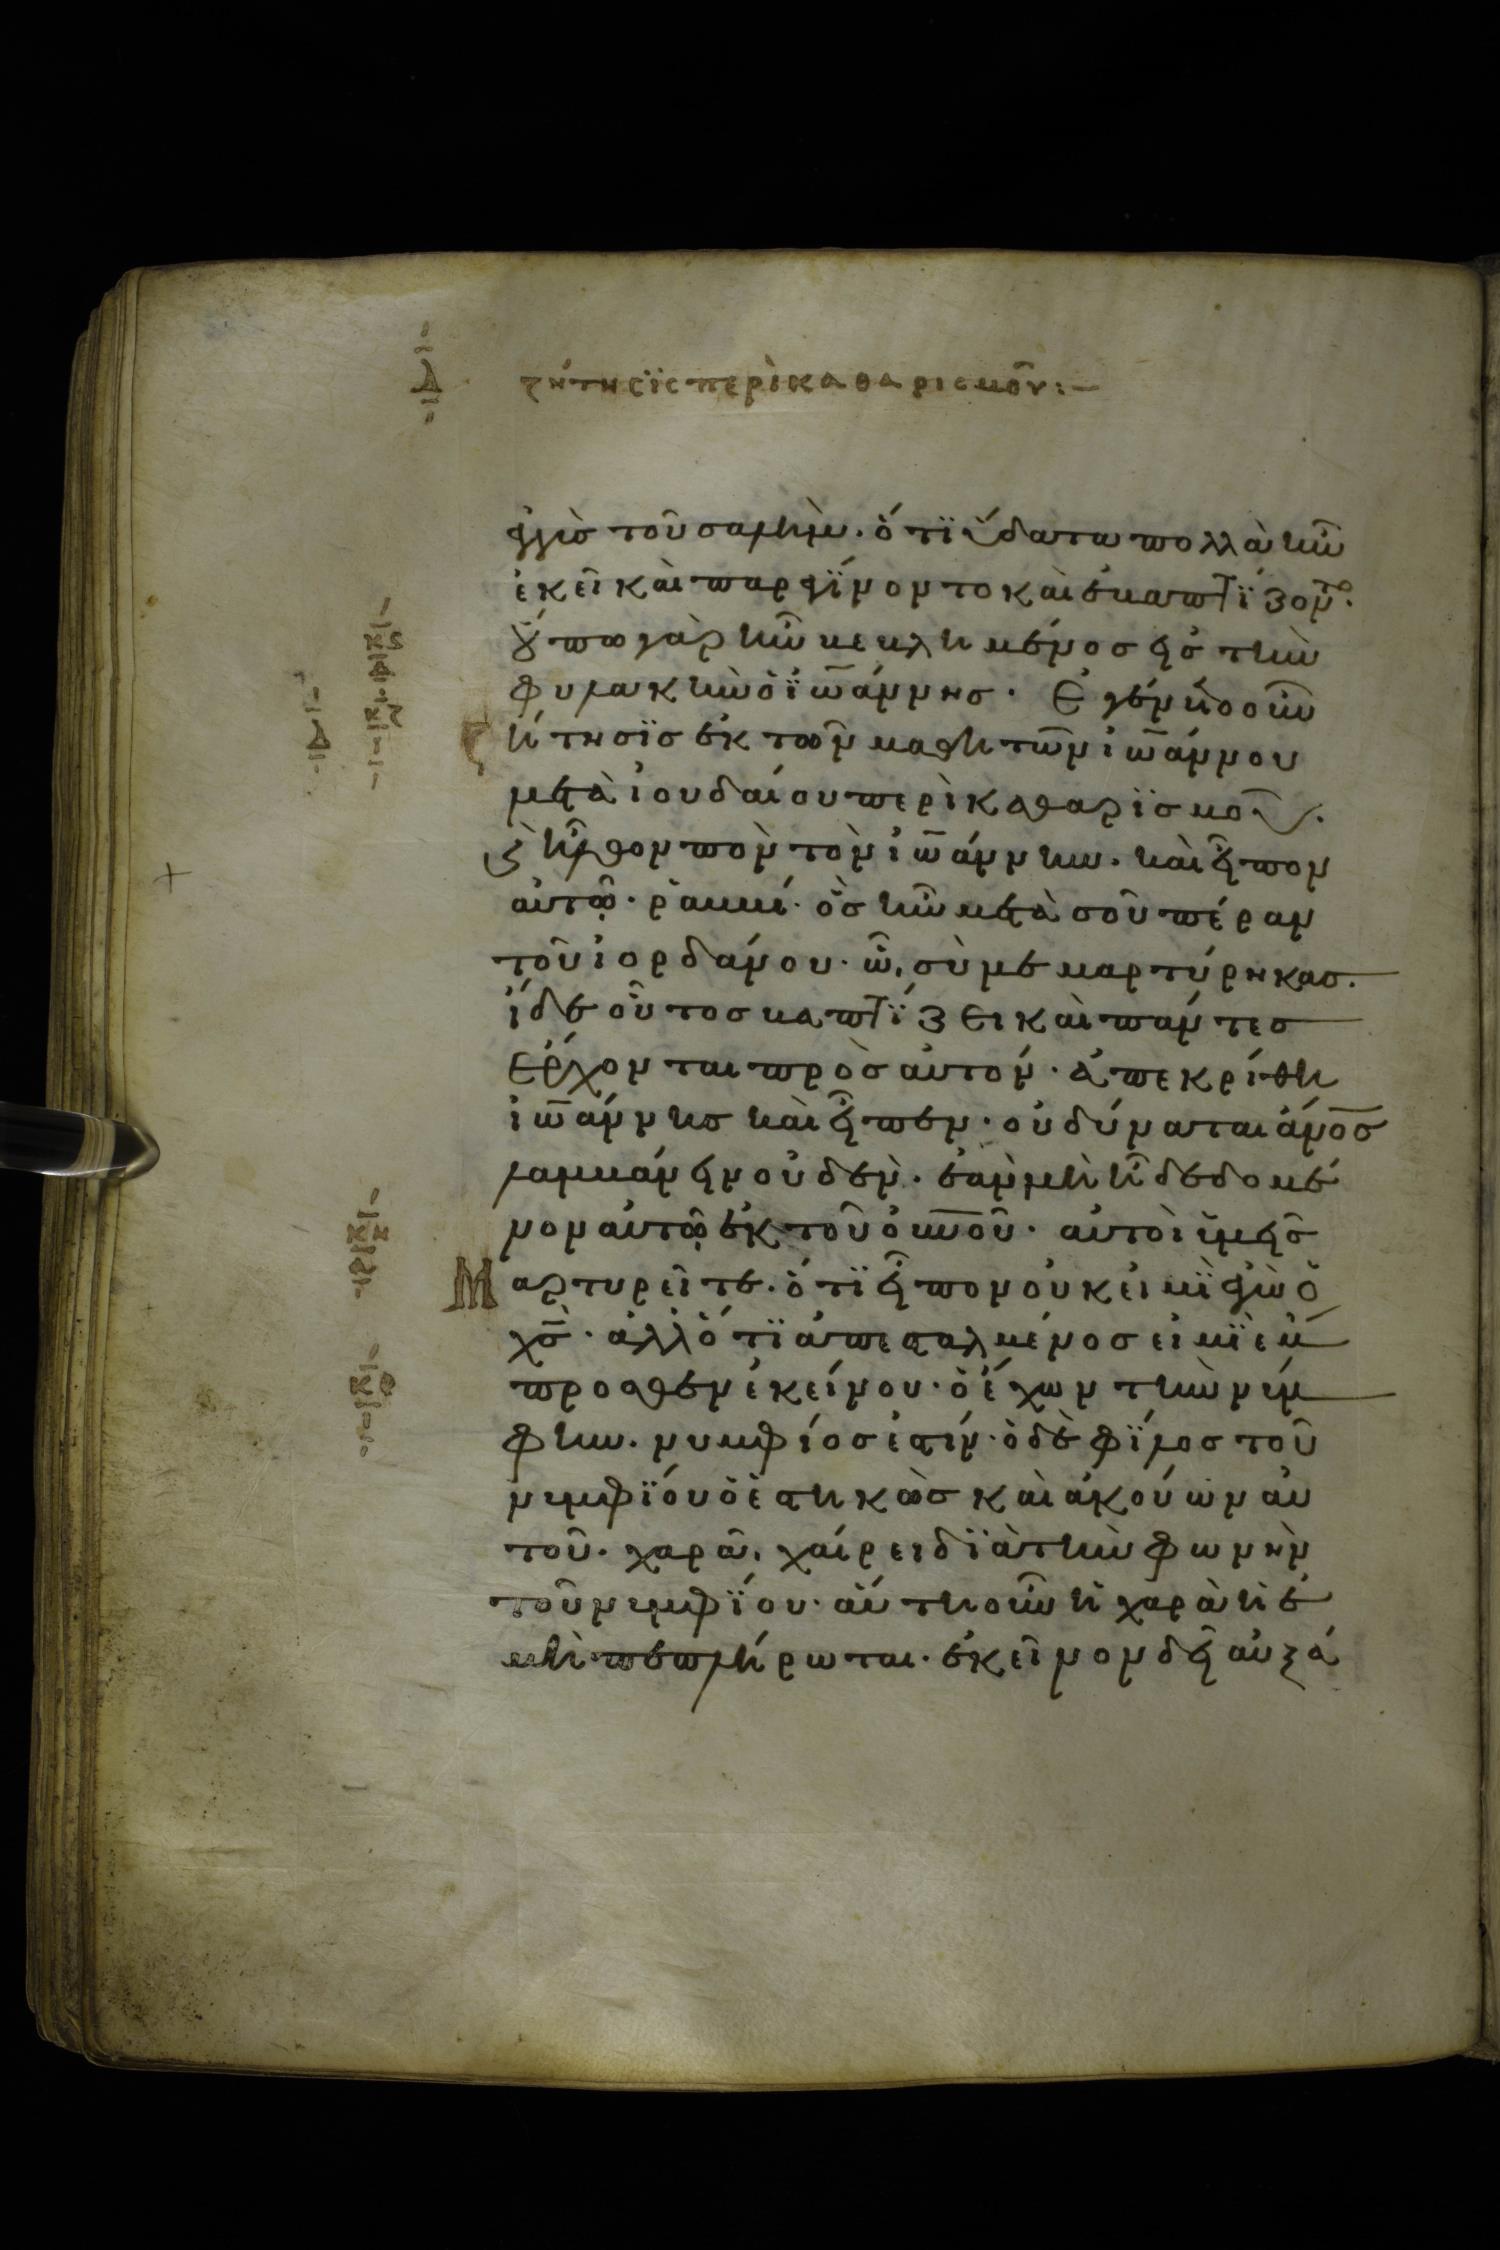 Δ ζήτησϊς περὶ καθαρισμοῦ:—
ἐγγὺσ τοῦ σαλὴμ· ὅτϊ ὕδατα πολλὰ ἦν
ἐκεῖ καὶ παρεγΐνοντο καὶ ἐβαπτΐζοντο·
οὔπω γὰρ ἦν βεβλημένοσ εἰσ τὴν
φυλακὴν ὁ ϊω̅άννησ· Ἐγένετο οὖν
Δ ζήτησϊσ ἐκ τῶν μαθητῶν ἰω̅άννου
μετὰ ἰουδαίου περὶ καθαρϊσμοῦ.
καὶ ἦλθον πὸν τὸν ἰω̅άννην· καὶ εἶπον
αὐτῶ· ῥαββί· ὃσ ἦν μετὰ σοῦ πέραν
τοῦ ἰορδάνου· ὧ, σὺ μεμαρτύρηκασ.
ἴδε οὗτοσ βαπτΐζει καὶ πάντεσ
ἔρχονται πρὸσ αὐτόν· ἀπεκρίθη
ἰω̅άννησ καὶ εἶπεν· οὐ δύναται ἄνο̅σ̅
λαμβάνειν οὐδέν· ἐὰν μὴ ἦ δεδομέ
νον αὐτῶ ἐκ τοῦ ο̅υ̅ν̅οῦ· αὐτοὶ ὑμεῖσ
Μαρτυρεῖτε· ὅτϊ εἶπον οὐκ εἰμϊ ἐγὼ ὁ
χ̅σ̅· ἀλλ' ὅτϊ ἀπεσταλμένοσ εἰμϊ ἔμ
προσθεν ἐκείνου· ὁ ἔχων τὴν νύμ
φην· νυμφίοσ ἐστίν· ὁ δὲ φΐλοσ τοῦ
νυμφΐου ὁ ἑστηκὼσ καὶ ἀκούων αὐ
τοῦ· χαρᾶ, χαίρει δϊὰ τὴν φωνὴν
τοῦ νυμφΐου· αὕτη οὖν ἡ χαρὰ ἡ ἐ
μὴ πεπλήρωται· ἐκεῖνον δεῖ αὐξά